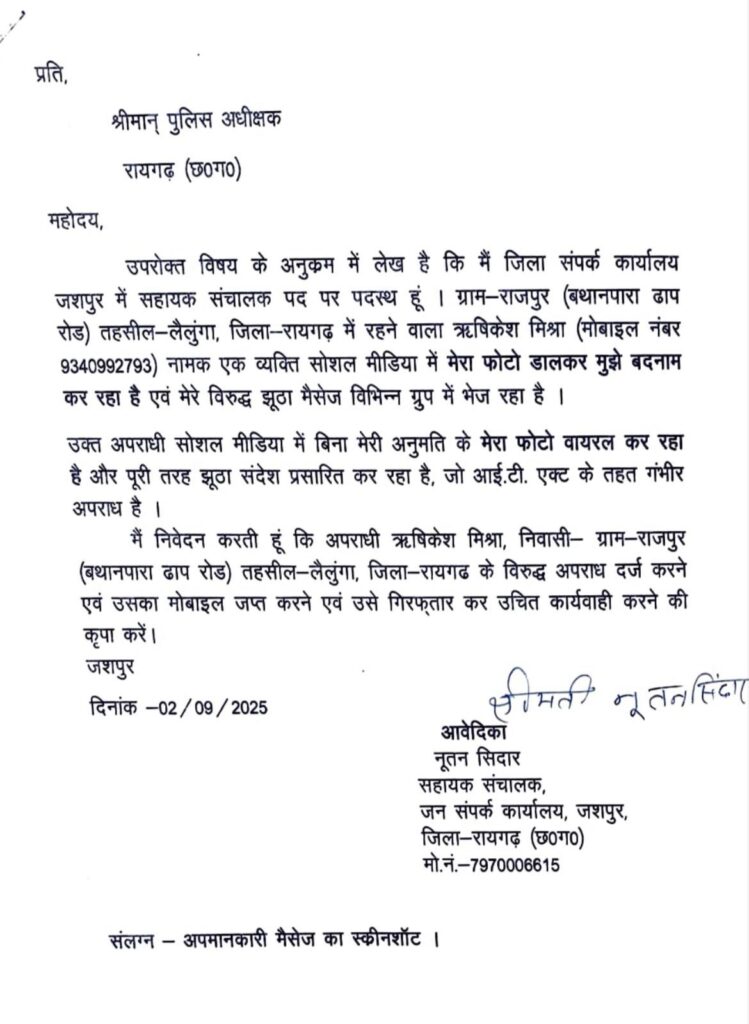 प्रति,
श्रीमान् पुलिस अधीक्षक
रायगढ़ (छ0ग0)
महोदय,
उपरोक्त विषय के अनुक्रम में लेख है कि मैं जिला संपर्क कार्यालय
जशपुर में सहायक संचालक पद पर पदस्थ हूं । ग्राम–राजपुर (बथानपारा ढाप
रोड) तहसील–लैलुंगा, जिला–रायगढ़ में रहने वाला ऋषिकेश मिश्रा (मोबाइल नंबर
9340992793) नामक एक व्यक्ति सोशल मीडिया में मेरा फोटो डालकर मुझे बदनाम
कर रहा है एवं मेरे विरुद्ध झूठा मैसेज विभिन्न ग्रुप में भेज रहा है ।
उक्त अपराधी सोशल मीडिया में बिना मेरी अनुमति के मेरा फोटो वायरल कर रहा
है और पूरी तरह झूठा संदेश प्रसारित कर रहा है, जो आई.टी. एक्ट के तहत गंभीर
अपराध है ।
मैं निवेदन करती हूं कि अपराधी ऋषिकेश मिश्रा, निवासी– ग्राम–राजपुर
(बथानपारा ढाप रोड) तहसील–लैलुंगा, जिला–रायगढ के विरुद्ध अपराध दर्ज करने
एवं उसका मोबाइल जप्त करने एवं उसे गिरफ्तार कर उचित कार्यवाही करने की
कृपा करें।
जशपुर
दिनांक –02/09/2025
श्रीमती नूतन सिंदार
आवेदिका
नूतन सिदार
सहायक संचालक,
जन संपर्क कार्यालय, जशपुर,
जिला–रायगढ़ (छ0ग0)
मो.नं.–7970006615
संलग्न – अपमानकारी मैसेज का स्कीनशॉट ।